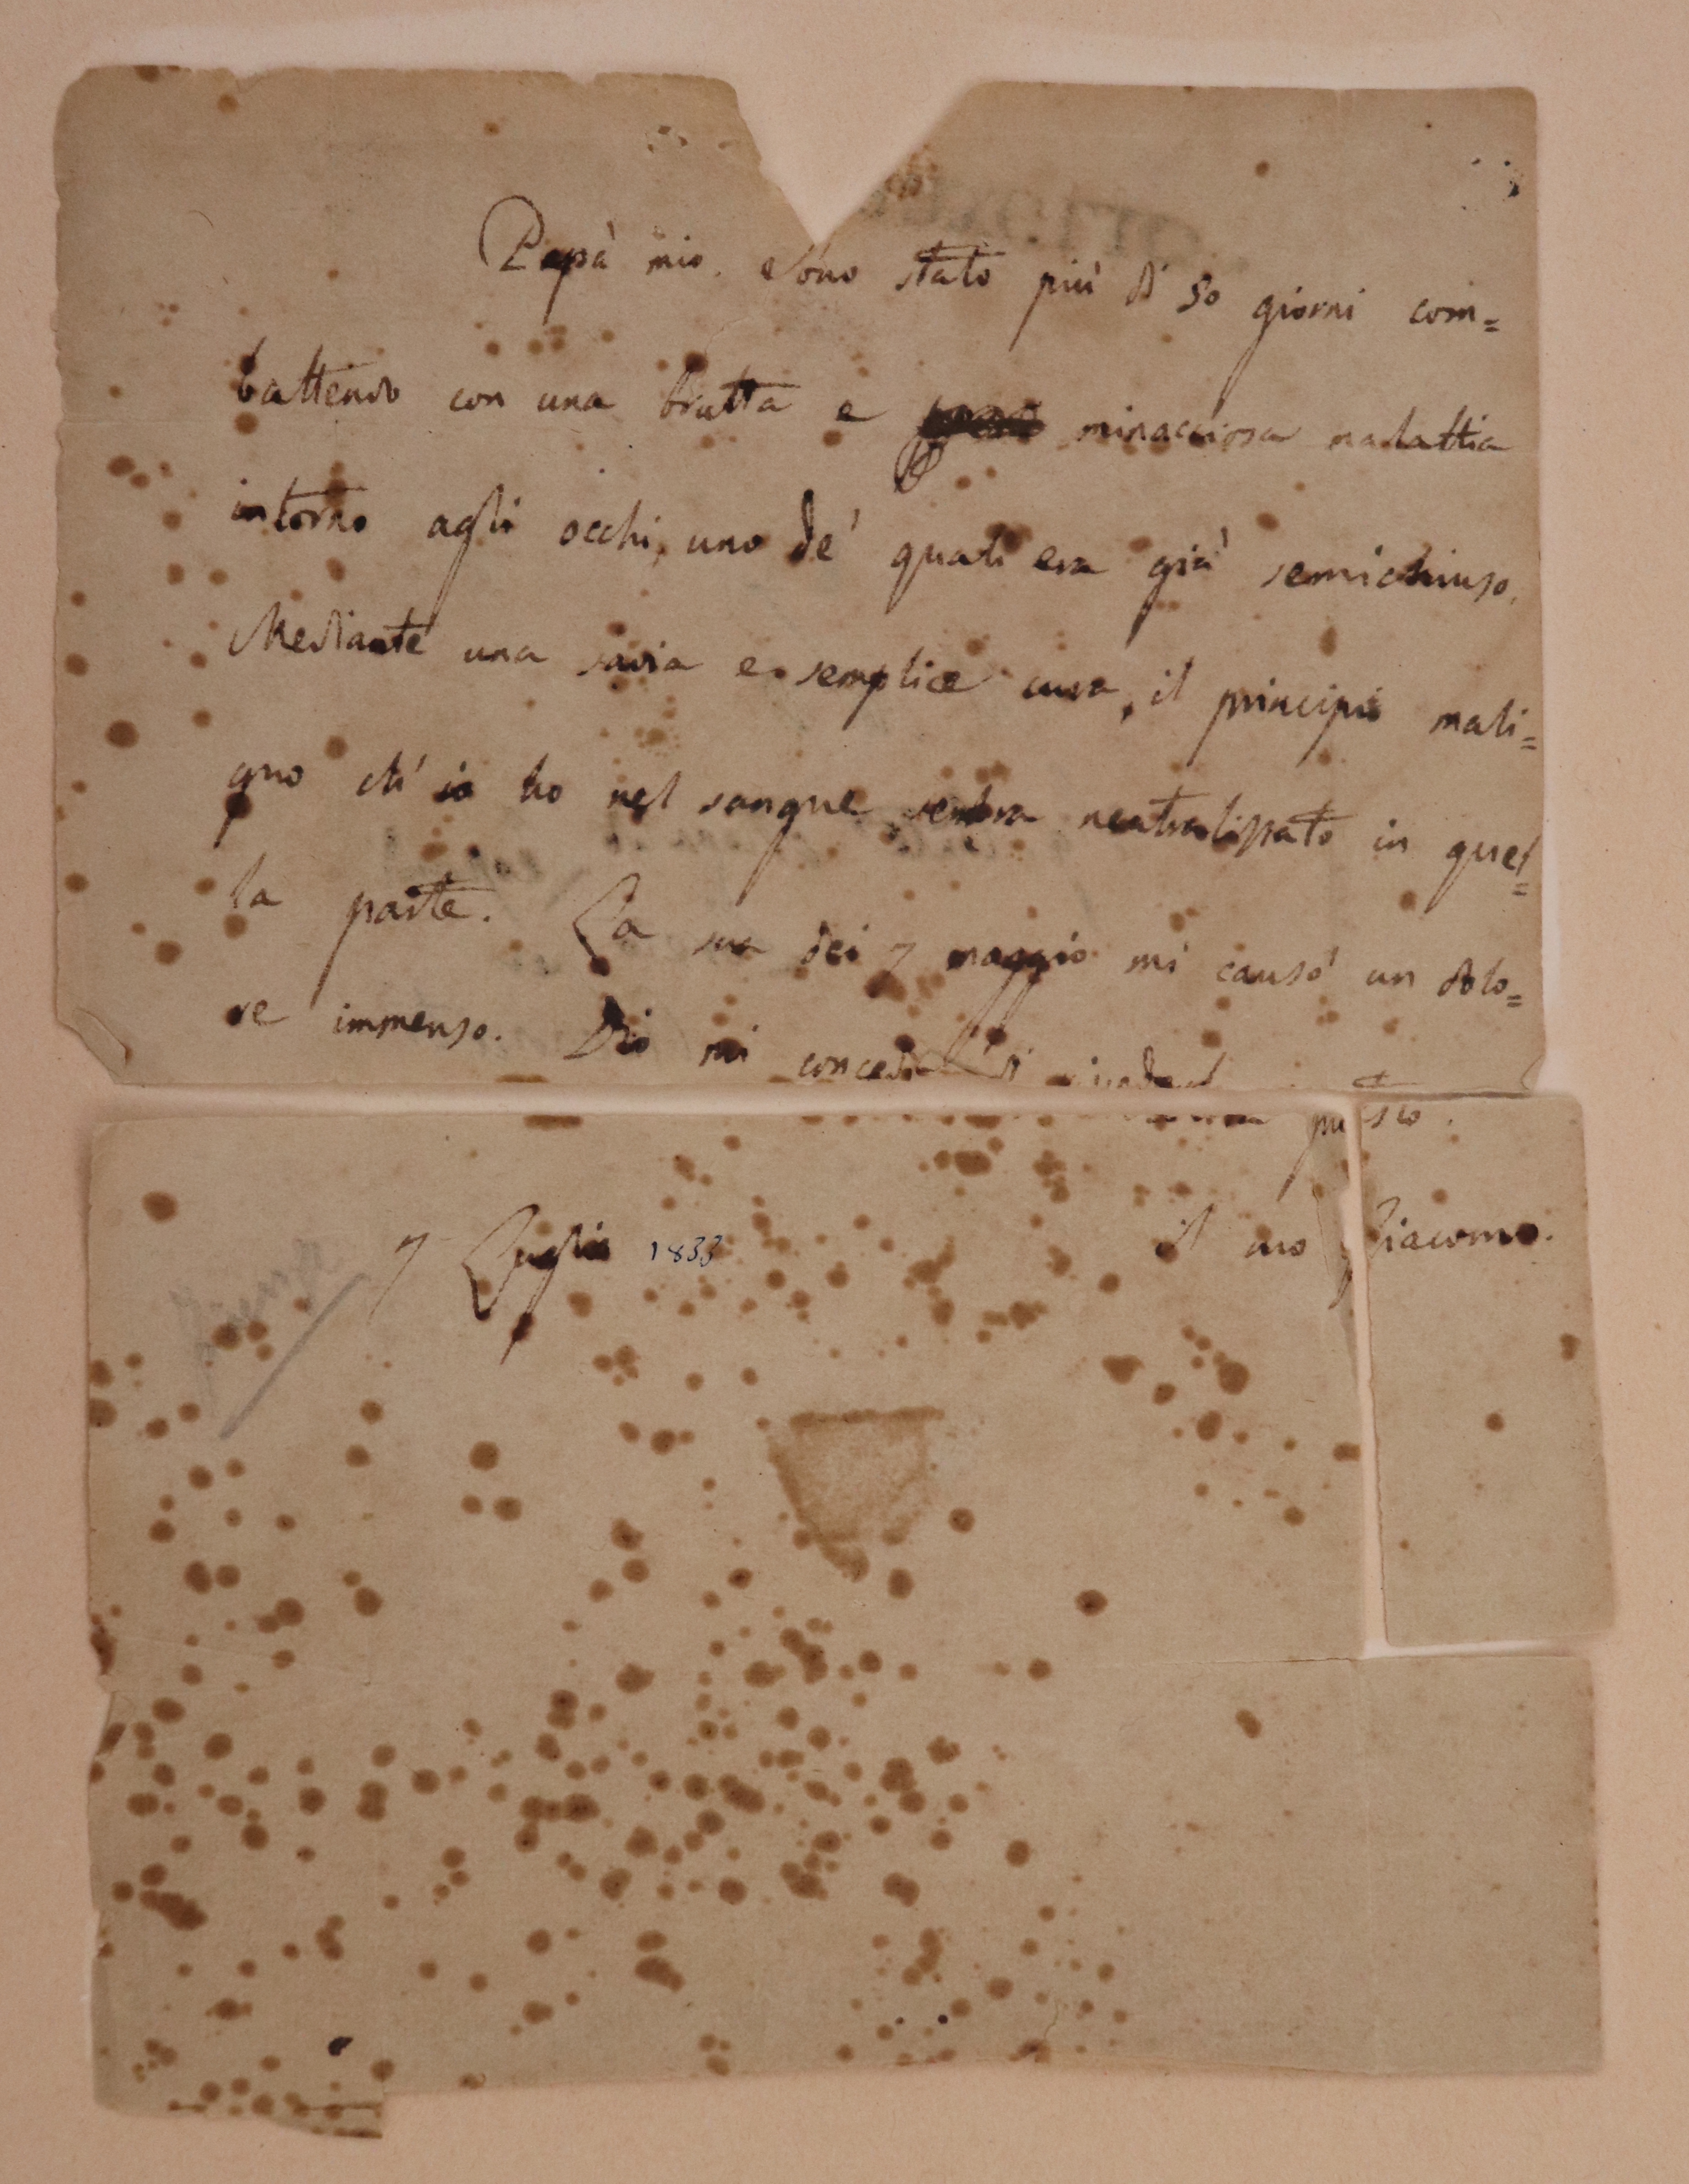 Papà mio. Sono stato più di 50 giorni com=
battendo con una brutta e minacciosa malattia
intorno agli occhi, uno de' quali era già semichiuso.
Mediante una savia e semplice cura, il principio mali=
gno ch'io ho nel sangue sembra neutralizzato in quel=
la parte. La sua dei 7 maggio mi causò un dolo=
re immenso. Dio mi conceda di presto.
7 Luglio 1833 il suo Giacomo.